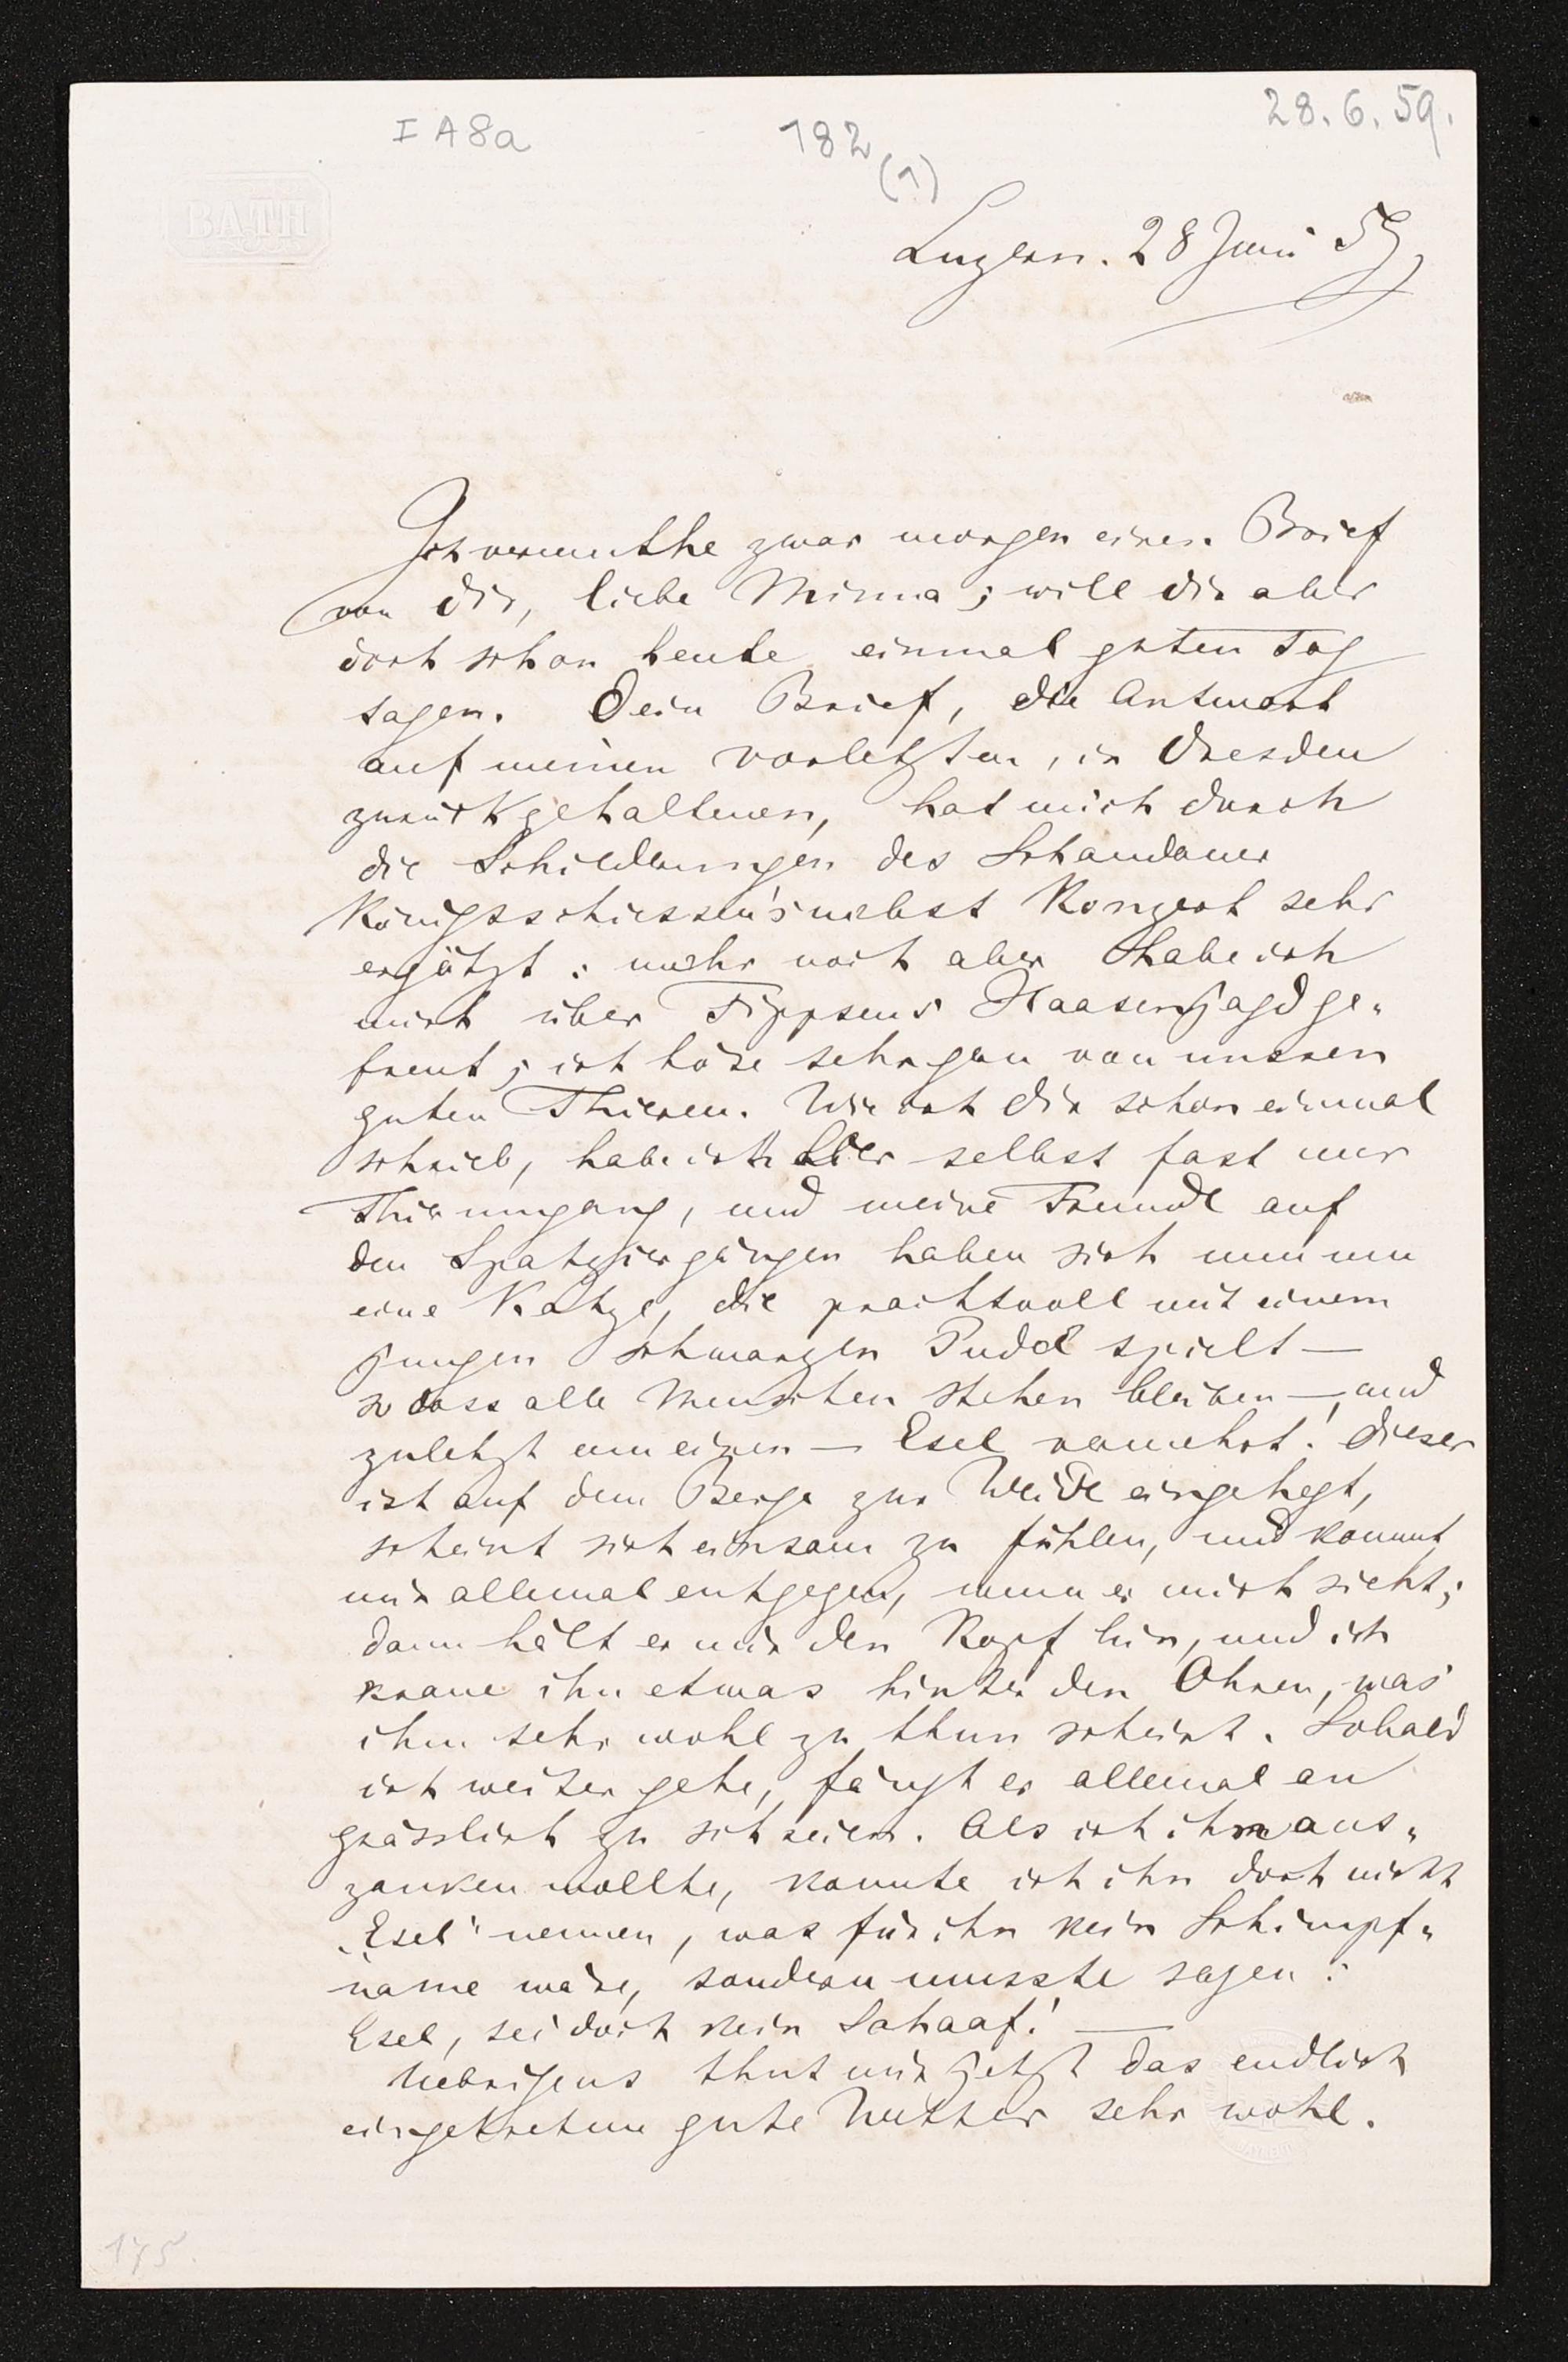 I A 8a
182
(1)
28. 6. 59.
BATH
Luzern. 28 Juni 59,
Ich vermuthe zwar morgen einen Brief
von dir, liebe Minna; will dir aber
doch schon heute einmal guten Tag
sagen. Dein Brief, die Antwort
auf meinen vorletzten, in Dresden
zurückgehaltenen, hat mich durch
die Schilderungen des Schandauer
Königsschiessen's nebst Konzert sehr
ergötzt: mehr noch aber habe ich
mich über Fippsens Haasenjagd ge-
freut; ich höre sehr gern von unsren
guten Thieren. Wie ich dir schon einmal
schrieb, habe ich hier selbst fast nur
Thierumgang, und meine Freunde auf
den Spatziergängen haben sich nun um
eine Katze, die prachtvoll mit einem
jungen schwarzen Pudel spielt —
so dass alle Menschen stehen bleiben —, und
zuletzt um einen — Esel vermehrt! Dieser
ist auf dem Berge zur Weide eingehegt,
scheint sich einsam zu fühlen, und kommt
mir allemal entgegen, wenn er mich sieht;
dann hält er mir den Kopf hin, und ich
kraue ihn etwas hinter den Ohren, was
ihm sehr wohl zu thun scheint. Sobald
ich weiter gehe, fängt er allemal an
grässlich zu schreien. Als ich ihn aus-
zanken wollte, konnte ich ihn doch nicht
„Esel" nennen, was für ihn kein Schimpf-
name wäre, sondern musste sagen:
Esel, sei doch kein Schaaf! —
Uebrigens thut mir jetzt das endlich
eingetretene gute Wetter sehr wohl.
175.